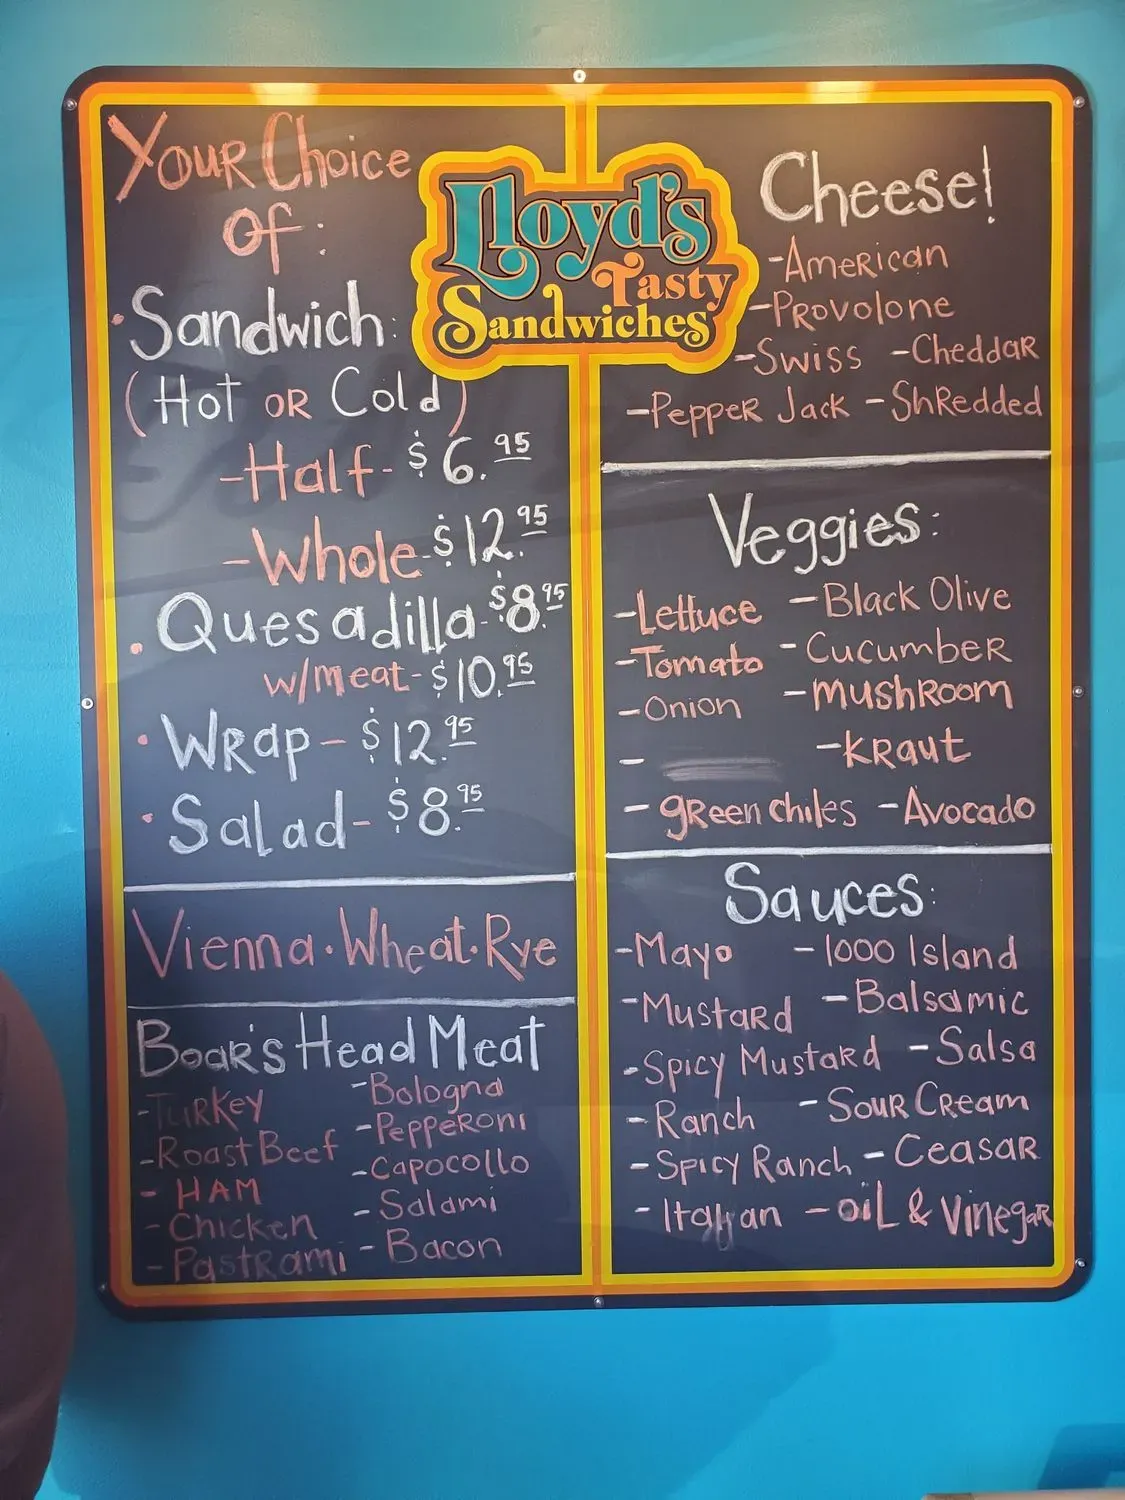 Your Choice
of:
Lloyd's
Tasty
Sandwiches
• Sandwich:
(Hot or Cold)
- Half - $6.95
- Whole - $12.95
• Quesadilla - $8.95
w/meat - $10.95
• Wrap - $12.95
• Salad - $8.95
Vienna • Wheat • Rye
Boar's Head Meat
- Turkey
- Roast Beef
- HAM
- Chicken
- Pastrami
- Bologna
- Pepperoni
- Capocollo
- Salami
- Bacon
Cheese!
- American
- Provolone
- Swiss - Cheddar
- Pepper Jack - Shredded
Veggies:
- Lettuce - Black Olive
- Tomato - Cucumber
- Onion - Mushroom
- - Kraut
- green chiles - Avocado
Sauces:
- Mayo - 1000 Island
- Mustard - Balsamic
- Spicy Mustard - Salsa
- Ranch - Sour Cream
- Spicy Ranch - Ceasar
- Italian - oil & Vinegar